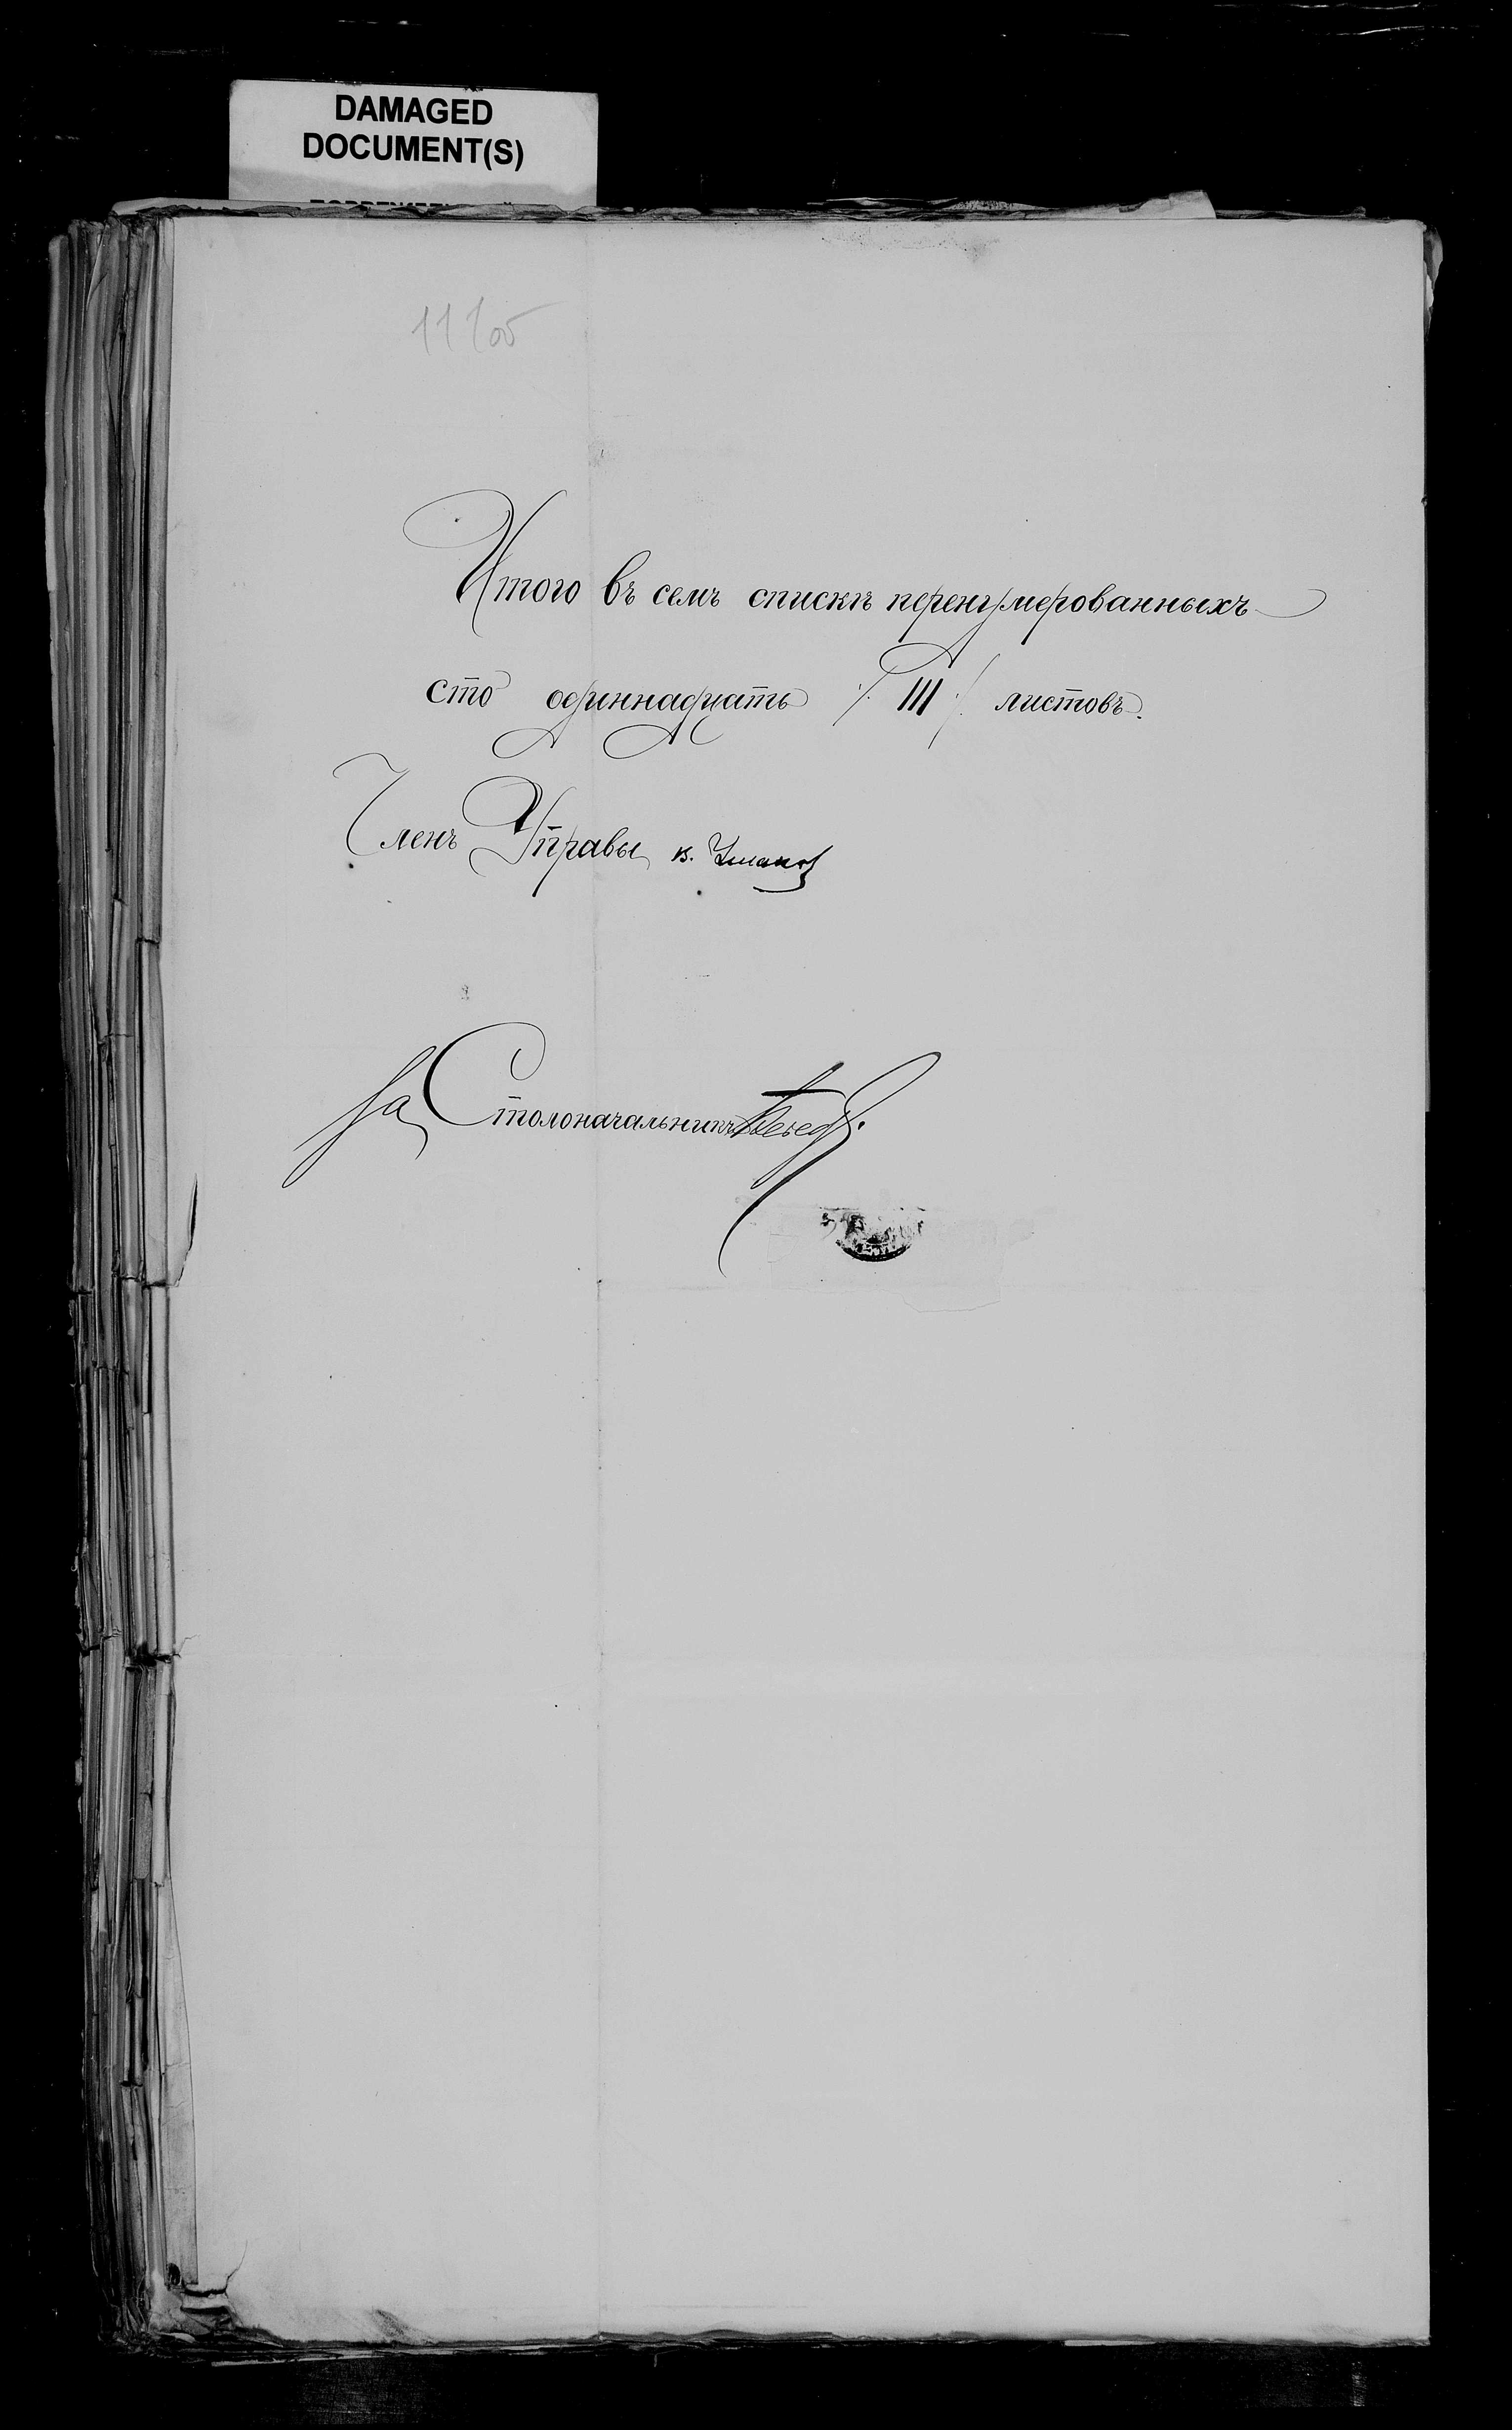 DAMAGED
DOCUMENT(S)
Итого въ семъ спискѣ перенумерованныхъ
сто одиннадцать /. 111 ./ листовъ.
Членъ Управы К.
За Столоначальникъ